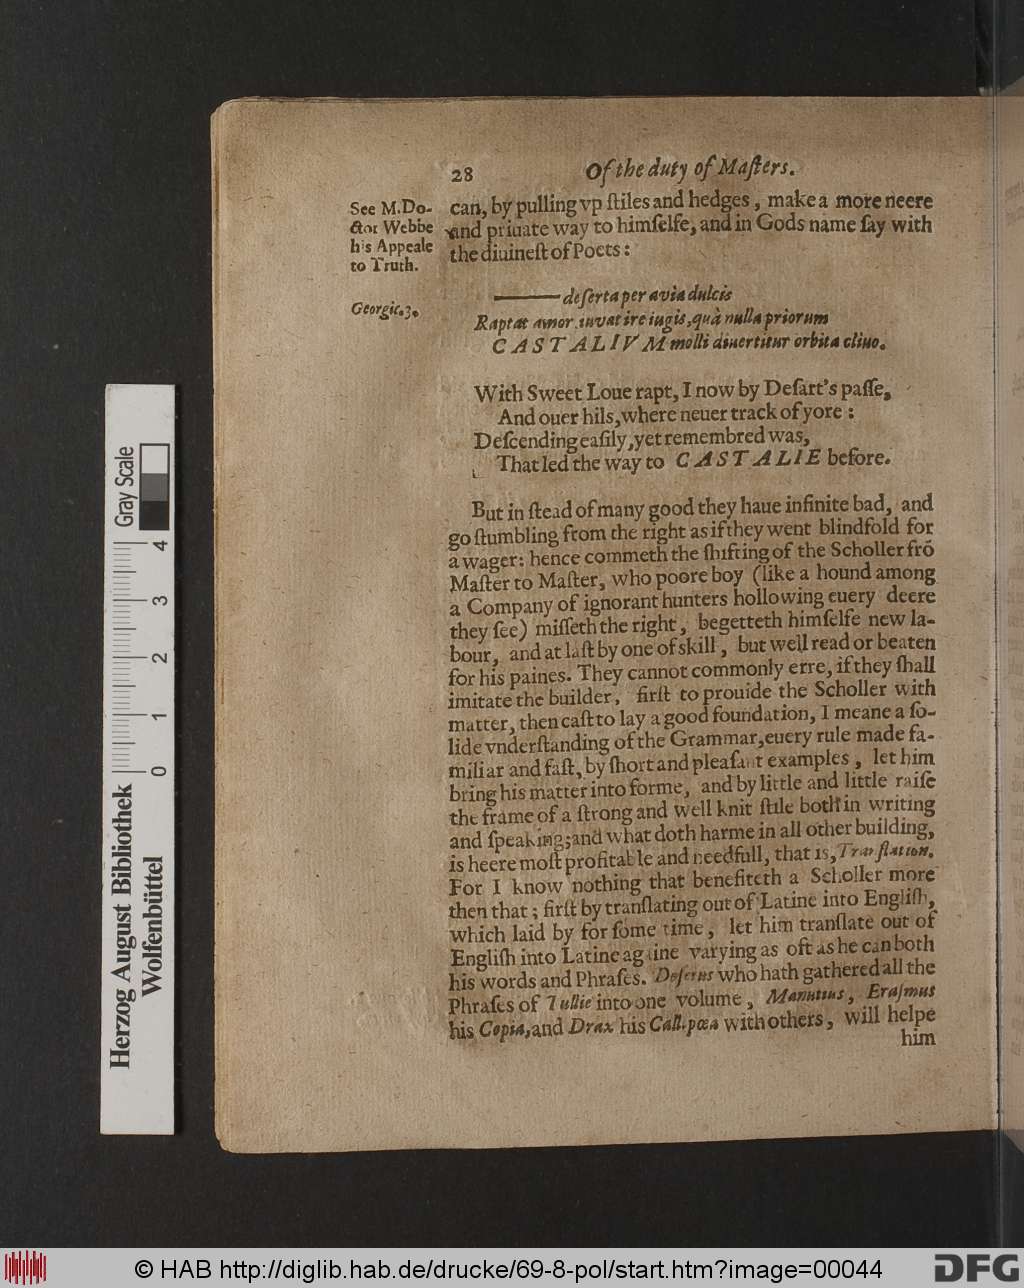 28 Of the duty of Maſters.
See M. Do-
ctor Webbe
his Appeale
to Truth.
Georgic. 3.
can, by pulling vp ſtiles and hedges, make a more neere
and priuate way to himſelfe, and in Gods name ſay with
the diuineſt of Poets:
——— deſerta per avia dulcis
Raptat amor. iuvat ire iugis, quà nulla priorum
CASTALIVM molli diuertitur orbita clivo.
With Sweet Loue rapt, I now by Deſart's paſſe,
And ouer hils, where neuer track of yore:
Deſcending eaſily, yet remembred was,
That led the way to CASTALIE before.
But in ſtead of many good they haue infinite bad, and
go ſtumbling from the right as if they went blindfold for
a wager: hence commeth the ſhifting of the Scholler frō
Maſter to Maſter, who poore boy (like a hound among
a Company of ignorant hunters hollowing euery deere
they ſee) miſſeth the right, begetteth himſelfe new la-
bour, and at laſt by one of skill, but well read or beaten
for his paines. They cannot commonly erre, if they ſhall
imitate the builder, firſt to prouide the Scholler with
matter, then caſt to lay a good foundation, I meane a ſo-
lide vnderſtanding of the Grammar, euery rule made fa-
miliar and faſt, by ſhort and pleaſant examples, let him
bring his matter into forme, and by little and little raiſe
the frame of a ſtrong and well knit ſtile both in writing
and ſpeaking; and what doth harme in all other building,
is heere moſt profitable and needfull, that is, Tranſlation.
For I know nothing that benefiteth a Scholler more
then that; firſt by tranſlating out of Latine into Engliſh,
which laid by for ſome time, let him tranſlate out of
Engliſh into Latine againe varying as oft as he can both
his words and Phraſes. Doſetus who hath gathered all the
Phraſes of Tullie into one volume, Manutius, Eraſmus
his Copia, and Drax his Callipœa with others, will helpe
him
Gray Scale
4
3
2
1
0
Herzog August Bibliothek
Wolfenbüttel
© HAB http://diglib.hab.de/drucke/69-8-pol/start.htm?image=00044
DFG